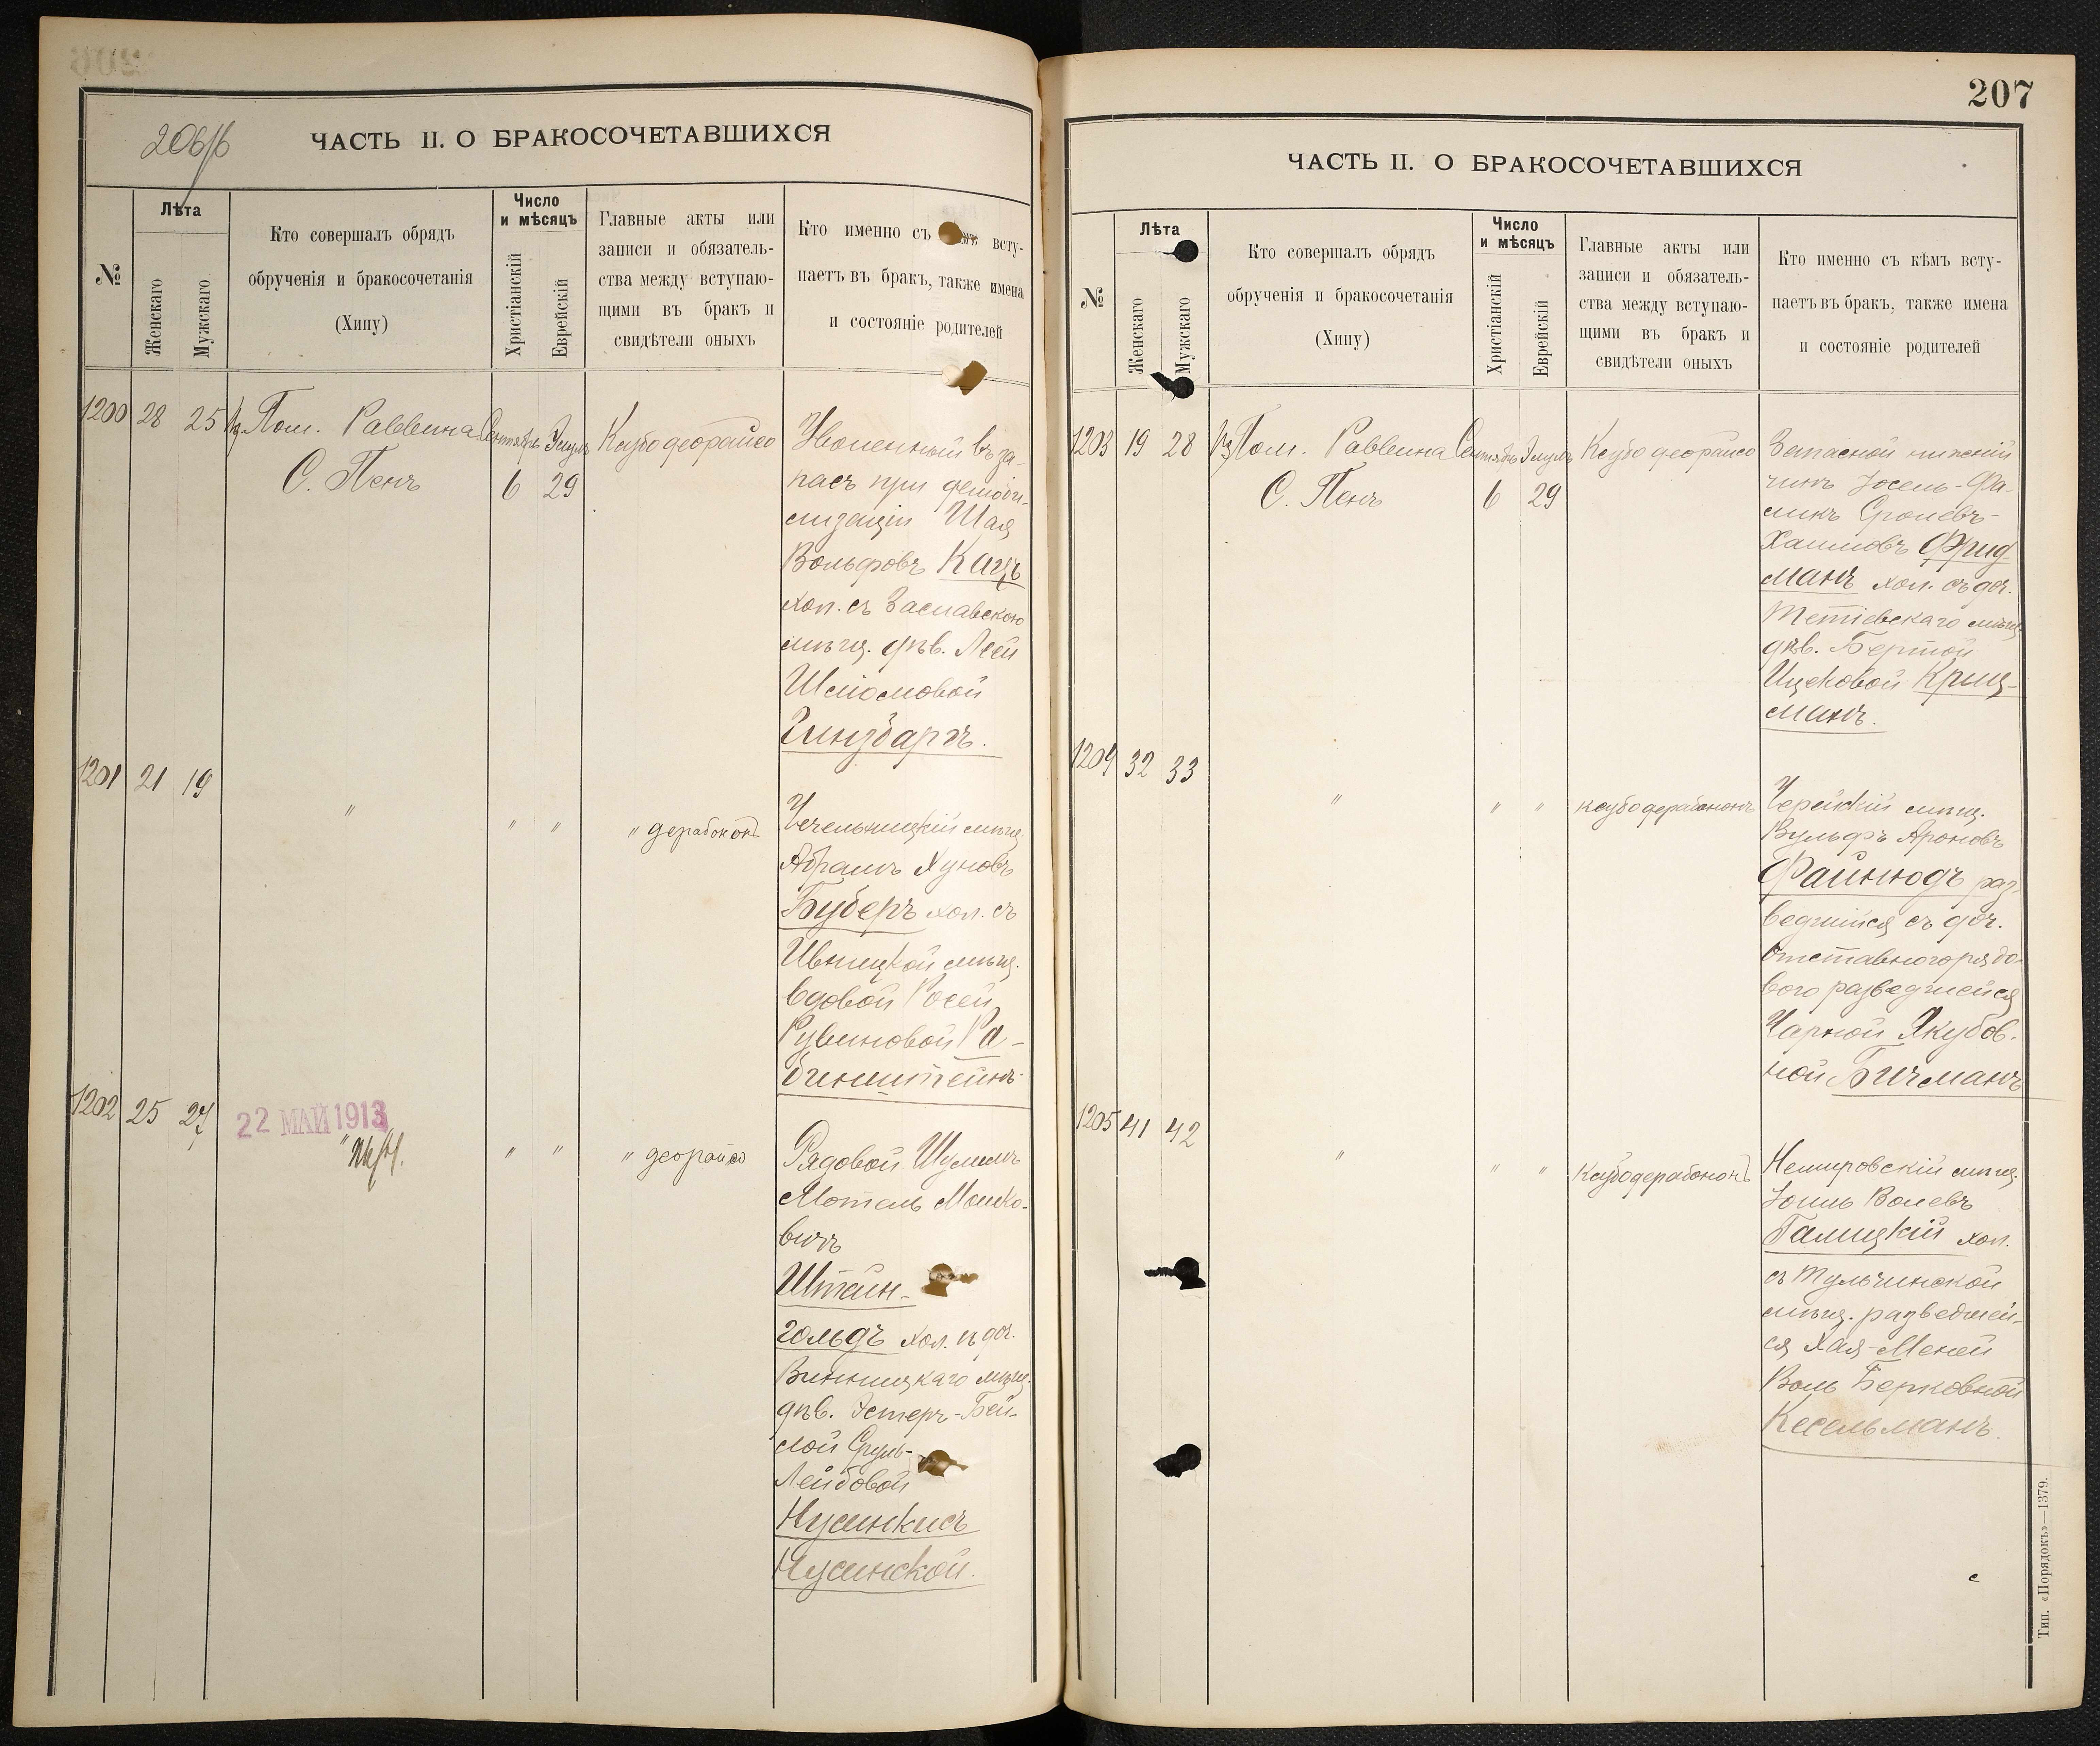 206/б
ЧАСТЬ II. О БРАКОСОЧЕТАВШИХСЯ
№
Лѣта
Женскаго
Мужскаго
Кто совершалъ обрядъ
обрученія и бракосочетанія
(Хипу)
Число
и мѣсяцъ
Христіанскій
Еврейскій
Главные акты или
записи и обязатель-
ства между вступаю-
щими въ бракъ и
свидѣтели оныхъ
Кто именно съ всту-
паетъ въ бракъ, также имена
и состояніе родителей
1200 28 25 Пом. Раввина Сентябрь Элулъ Ксубо деорайсо
С. Пенъ 6 29
Уволенный въ за-
пасъ при демоби-
лизаціи Шая
Вольфовъ Кацъ
хол. съ Заславскою
мѣщ. дѣв. Леей
Шліомовой
Гинзбаргъ.
1201 21 19 " " " " дерабононъ
Чечельницкій мѣщ.
Абрамъ Хуновъ
Буберъ хол. съ
Ивницкой мѣщ.
вдовой Росей
Рувиновой Ра-
бинштейнъ
1202 25 27 22 МАЙ 1913
" " " " деорайсо
Рядовой Шулимъ
Мотель Мошко-
вичъ
Штейн-
гольдъ хол. съ доч.
Винницкаго мѣщ.
дѣв. Эстеръ-Бей-
лой Сруль-
Лейбовой
Нусинкисъ
Нусинской.
207
ЧАСТЬ II. О БРАКОСОЧЕТАВШИХСЯ
№
Лѣта
Женскаго
Мужскаго
Кто совершалъ обрядъ
обрученія и бракосочетанія
(Хипу)
Число
и мѣсяцъ
Христіанскій
Еврейскій
Главные акты или
записи и обязатель-
ства между вступаю-
щими въ бракъ и
свидѣтели оныхъ
Кто именно съ кѣмъ всту-
паетъ въ бракъ, также имена
и состояніе родителей
1203 19 28 Пом. Раввина Сентябрь Элулъ Ксубо деорайсо
С. Пенъ 6 29
Запасной нижній
чинъ Іосель-Фа-
ликъ Сролевъ-
Хаимовъ Фрид-
манъ хол. съ доч.
Тетіевскаго мѣщ.
дѣв. Бертой
Ицковой Криц-
манъ.
1204 32 33 " " " ксубо дерабононъ
Черейскій мѣщ.
Вульфъ Ароновъ
Файнюдъ раз-
ведшійся съ доч.
отставного рядо-
вого разведшейся
Чарной Якубов-
ной Бичманъ
1205 41 42 " " " Ксубо дерабононъ
Немировскій мѣщ.
Іоиль Волевъ
Галицкій хол.
съ Тульчинской
мѣщ. разведшей-
ся Хая-Меней
Воль Берковной
Кесельманъ.
Тип. «Порядокъ»—1379.